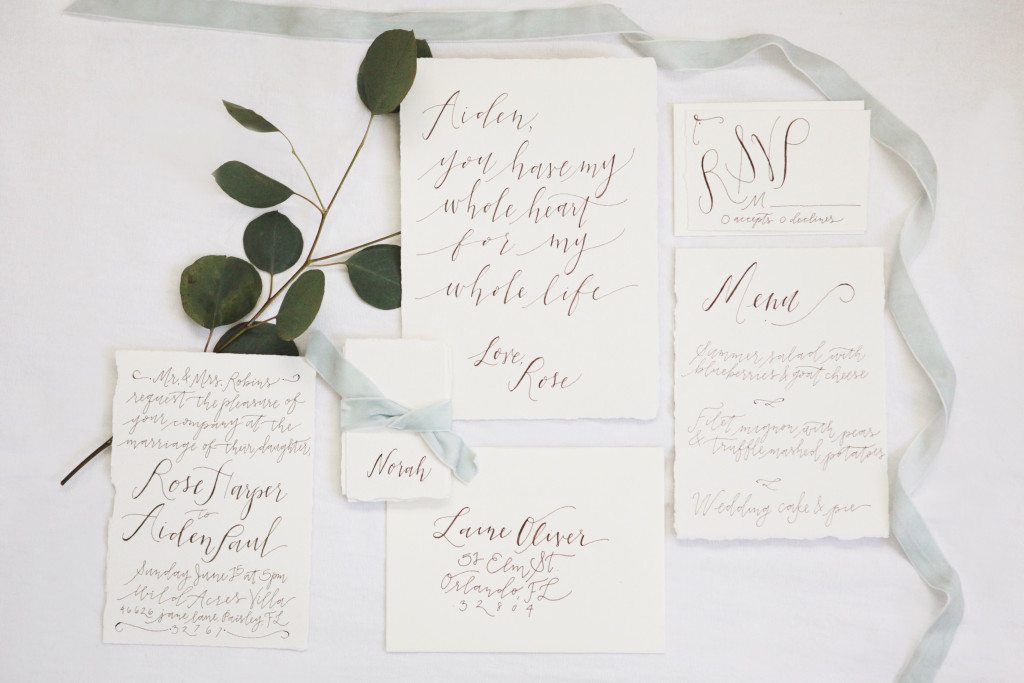 Aiden,
you have my
whole heart
for my
whole life
Love,
Rose
RSVP
M
0 accepts 0 declines
Menu
Summer salad with
blueberries & goat cheese
or
Filet mignon with peas
& truffle mashed potatoes
or
Wedding cake & pie
Mr. & Mrs. Robins
request the pleasure of
your company at the
marriage of their daughter,
Rose Harper
to
Aiden Paul
Sunday June 15 at 5pm
Wild Acres Villa
46626 Jane Lane, Paisley, FL
32767
Norah
Laine Oliver
57 Elm St.
Orlando, FL
32804